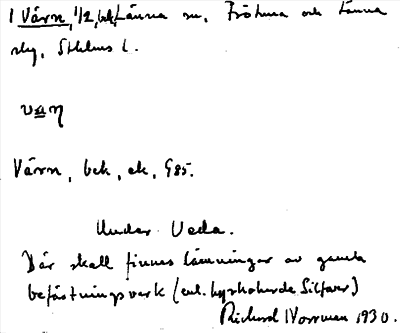 1 Värn, 1/2, bek, Länna sn, Frötuna och Länna
slg, Sthlms l.
Värn, bek, ek, G 85.
Under Veda.
Där skall finnas lämningar av gamla
befästningsverk (enl. kyrkoherde Silfver)
Richard Norrman 1930.